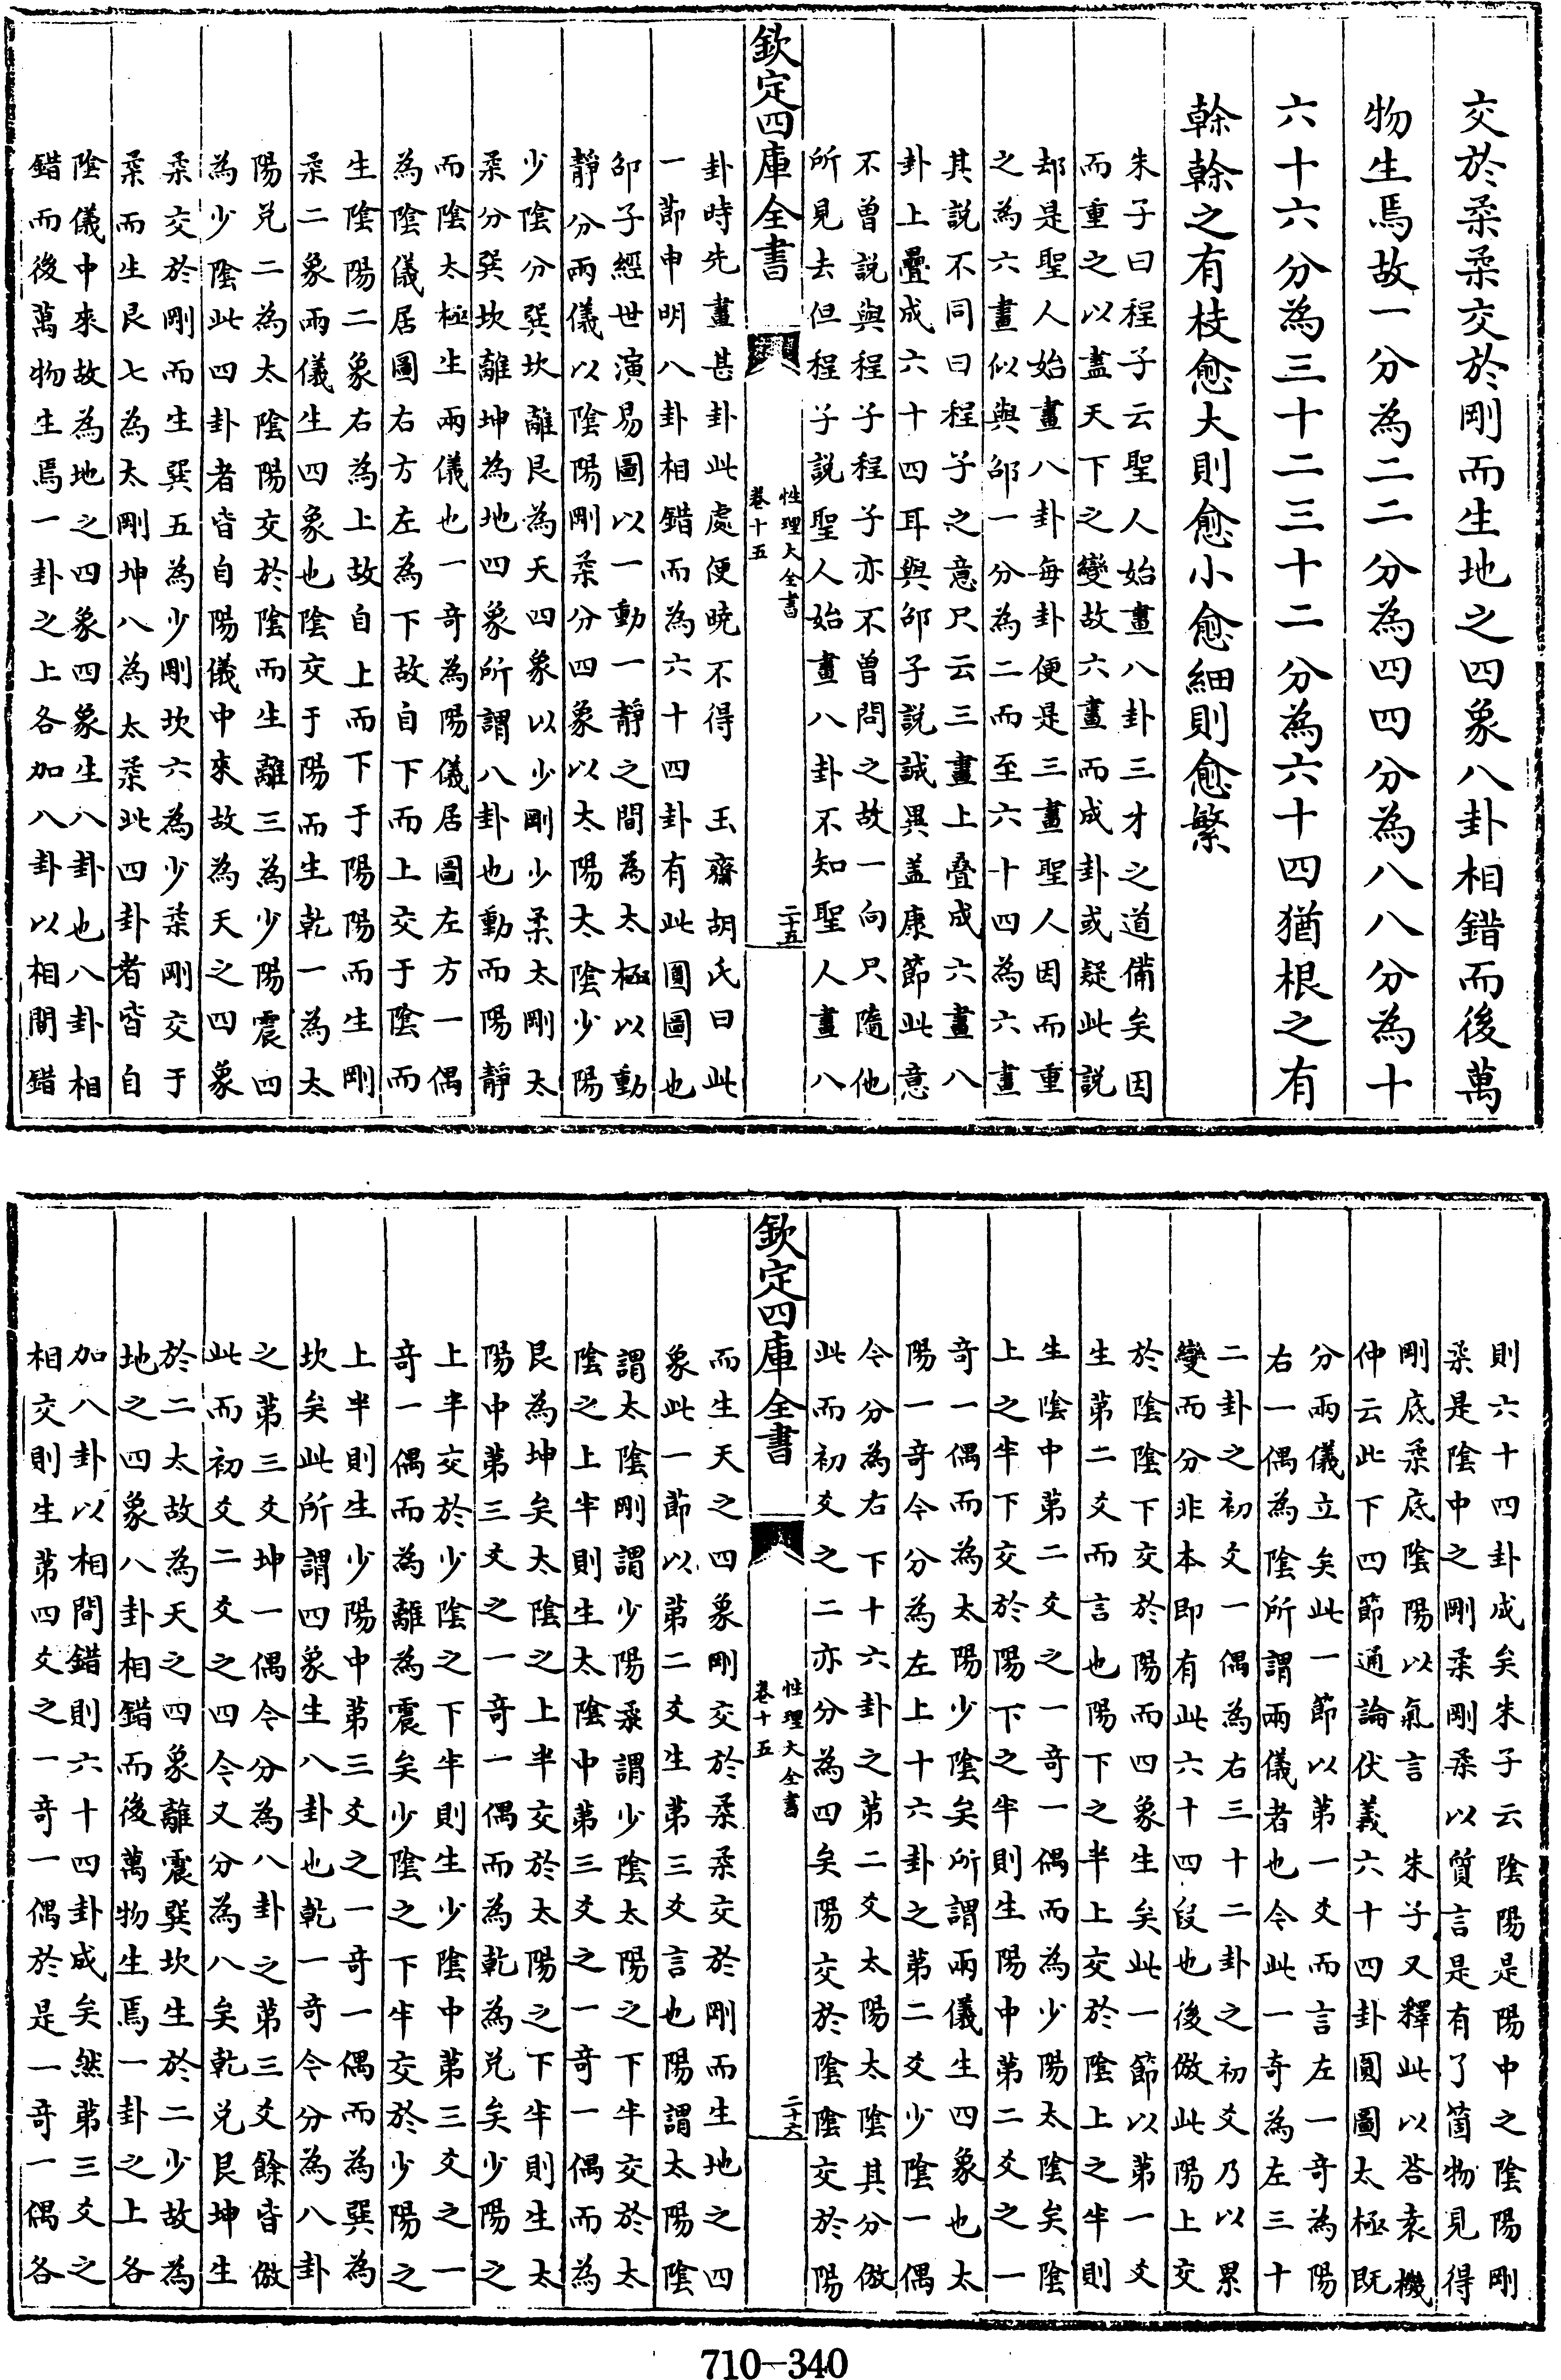 交於柔柔交於剛而生地之四象八卦相錯而後萬
物生焉故一分為二二分為四四分為八八分為十
六十六分為三十二三十二分為六十四猶根之有
榦榦之有枝愈大則愈小愈細則愈繁
朱子曰程子云聖人始畫八卦三才之道備矣因
而重之以盡天下之變故六畫而成卦或疑此説
却是聖人始畫八卦每卦便是三畫聖人因而重
之為六畫似與邵一分為二而至六十四為六畫
其説不同曰程子之意只云三畫上疊成六畫八
卦上疊成六十四耳與邵子説誠異盖康節此意
不曾説與程子程子亦不曾問之故一向只隨他
所見去但程子説聖人始畫八卦不知聖人畫八
欽定四庫全書
性理大全書
卷十五
二十五
卦時先畫甚卦此處便曉不得 玉齋胡氏曰此
一節申明八卦相錯而為六十四卦有此圓圖也
邵子經世演易圖以一動一靜之間為太極以動
靜分兩儀以陰陽剛柔分四象以太陽太陰少陽
少陰分巽坎離艮為天四象以少剛少柔太剛太
柔分巽坎離坤為地四象所謂八卦也動而陽靜
而陰太極生兩儀也一奇為陽儀居圖左方一偶
為陰儀居圖右方左為下故自下而上交于陰而
生陰陽二象右為上故自上而下于陽陽而生剛
柔二象兩儀生四象也陰交于陽而生乾一為太
陽兑二為太陰陽交於陰而生離三為少陽震四
為少陰此四卦者皆自陽儀中來故為天之四象
柔交於剛而生巽五為少剛坎六為少柔剛交于
柔而生艮七為太剛坤八為太柔此四卦者皆自
陰儀中來故為地之四象四象生八卦也八卦相
錯而後萬物生焉一卦之上各加八卦以相間錯
則六十四卦成矣朱子云陰陽是陽中之陰陽剛
柔是陰中之剛柔剛柔以質言是有了箇物見得
剛底柔底陰陽以氣言 朱子又釋此以答袁機
仲云此下四節通論伏羲六十四卦圓圖太極既
分兩儀立矣此一節以第一爻而言左一奇為陽
右一偶為陰所謂兩儀者也今此一奇為左三十
二卦之初爻一偶為右三十二卦之初爻乃以累
變而分非本即有此六十四段也後倣此陽上交
於陰陰下交於陽而四象生矣此一節以第一爻
生第二爻而言也陽下之半上交於陰上之半則
生陰中第二爻之一奇一偶而為少陽太陰矣陰
上之半下交於陽下之半則生陽中第二爻之一
奇一偶而為太陽少陰矣所謂兩儀生四象也太
陽一奇今分為左上十六卦之第二爻少陰一偶
今分為右下十六卦之第二爻太陽太陰其分倣
此而初爻之二亦分為四矣陽交於陰陰交於陽
欽定四庫全書
性理大全書
卷十五
二十六
而生天之四象剛交於柔柔交於剛而生地之四
象此一節以第二爻生第三爻言也陽謂太陽陰
謂太陰剛謂少陽柔謂少陰太陽之下半交於太
陰之上半則生太陰中第三爻之一奇一偶而為
艮為坤矣太陰之上半交於太陽之下半則生太
陽中第三爻之一奇一偶而為乾為兑矣少陽之
上半交於少陰之下半則生少陰中第三爻之一
奇一偶而為離為震矣少陰之下半交於少陽之
上半則生少陽中第三爻之一奇一偶而為巽為
坎矣此所謂四象生八卦也乾一奇今分為八卦
之第三爻坤一偶今分為八卦之第三爻餘皆倣
此而初爻二爻之四今又分為八矣乾兑艮坤生
於二太故為天之四象離震巽坎生於二少故為
地之四象八卦相錯而後萬物生焉一卦之上各
加八卦以相間錯則六十四卦成矣然第三爻之
相交則生第四爻之一奇一偶於是一奇一偶各
710-340